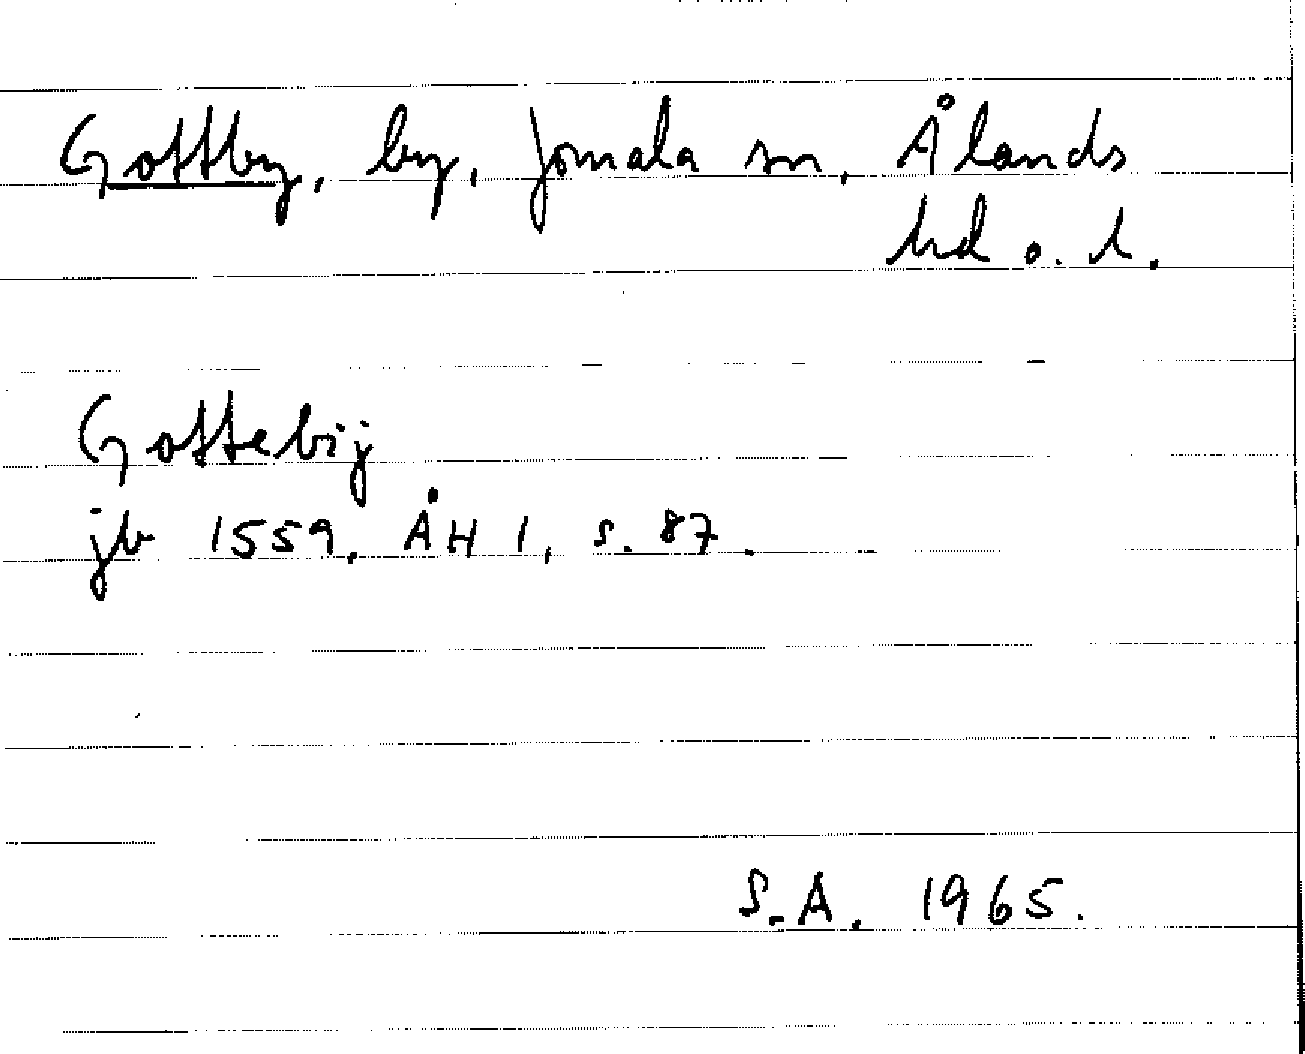 Gottby, by, Jomala sn, Ålands
hd o. l.
Gottebij
jb 1559, ÅH 1, s. 87.
S.A. 1965.